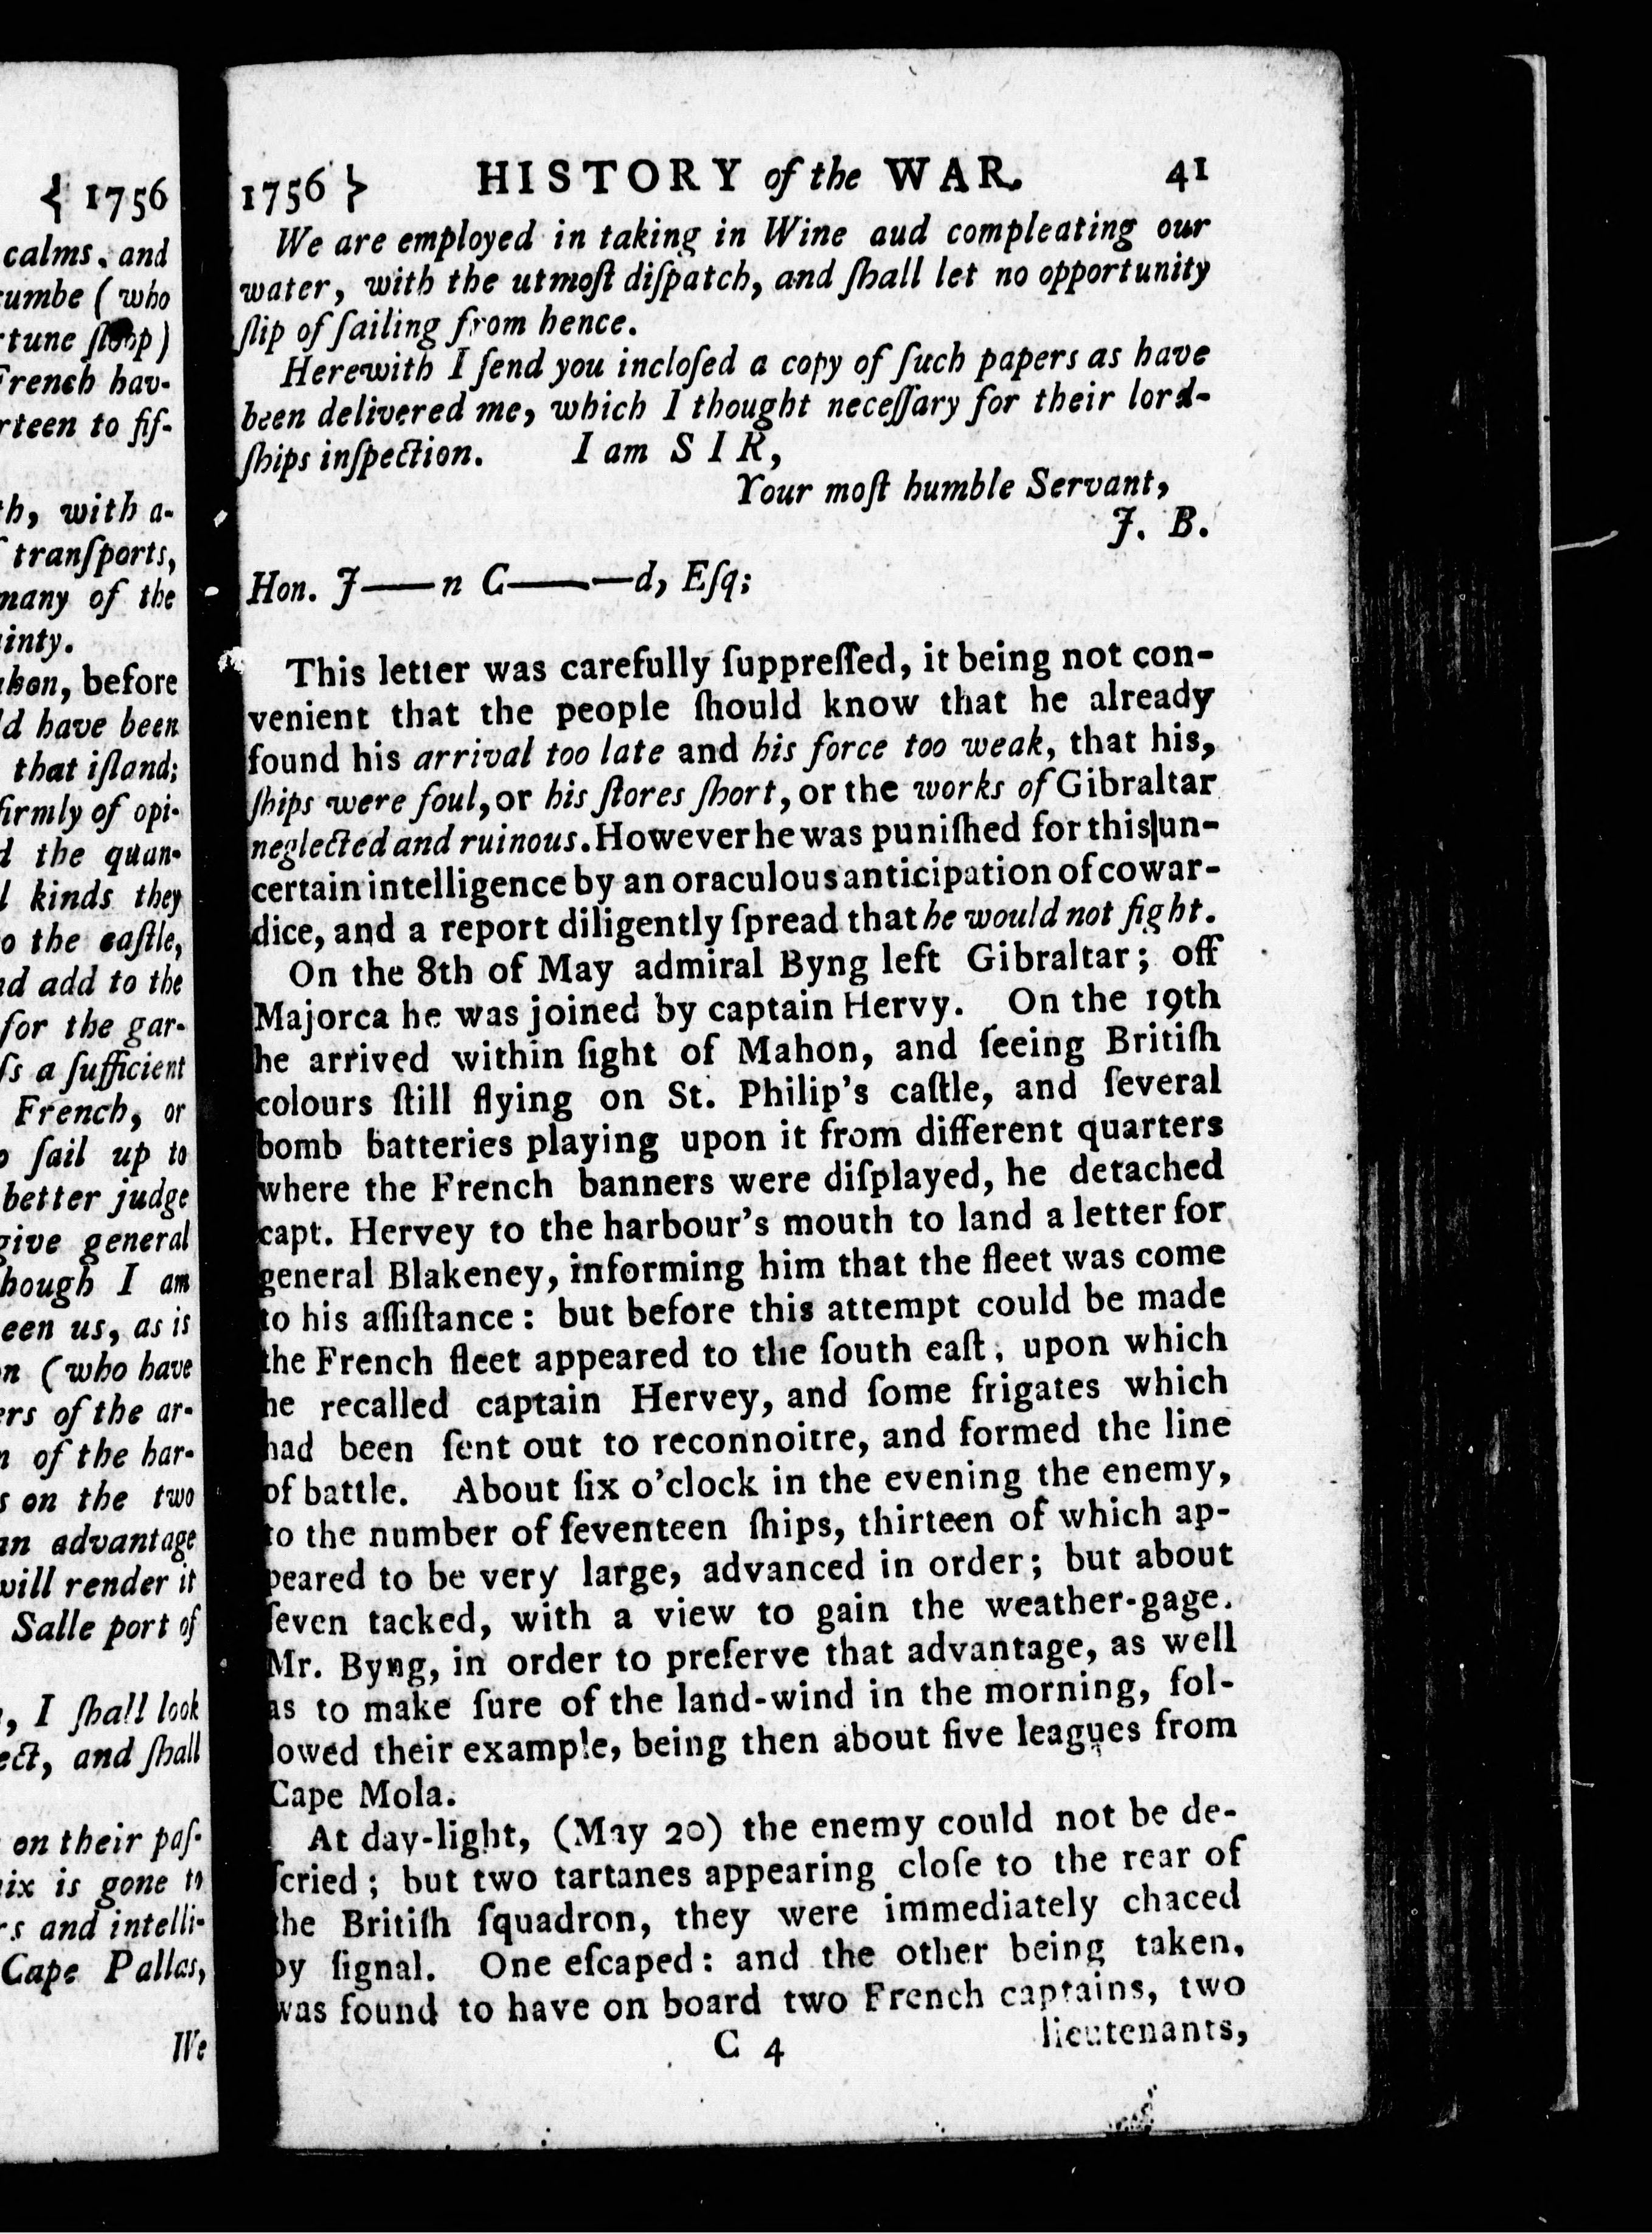 { 1756
calms, and
cumbe (who
rtune sloop)
French hav-
rteen to fif-
th, with a-
transports,
many of the
ainty.
ahon, before
ld have been
that iſland;
firmly of opi-
d the quan-
l kinds they
o the caſtle,
nd add to the
for the gar-
ſs a ſufficient
French, or
o ſail up to
better judge
give general
hough I am
een us, as is
n (who have
ers of the ar-
n of the har-
s on the two
an advantage
will render it
Salle port of
, I ſhall look
ect, and ſhall
on their paſ-
ix is gone to
rs and intelli-
Cape Pallas,
We
1756 } HISTORY of the WAR. 41
We are employed in taking in Wine aud compleating our
water, with the utmoſt diſpatch, and ſhall let no opportunity
ſlip of ſailing from hence.
Herewith I ſend you incloſed a copy of ſuch papers as have
been delivered me, which I thought neceſſary for their lord-
ſhips inſpection. I am S I R,
Your moſt humble Servant,
J. B.
Hon. J——n C———d, Eſq;
This letter was carefully ſuppreſſed, it being not con-
venient that the people ſhould know that he already
found his arrival too late and his force too weak, that his,
ſhips were foul, or his ſtores ſhort, or the works of Gibraltar
neglected and ruinous. However he was puniſhed for this|un-
certain intelligence by an oraculous anticipation of cowar-
dice, and a report diligently ſpread that he would not fight.
On the 8th of May admiral Byng left Gibraltar; off
Majorca he was joined by captain Hervy. On the 19th
he arrived within ſight of Mahon, and ſeeing Britiſh
colours ſtill flying on St. Philip's caſtle, and ſeveral
bomb batteries playing upon it from different quarters
where the French banners were diſplayed, he detached
capt. Hervey to the harbour's mouth to land a letter for
general Blakeney, informing him that the fleet was come
to his aſſiſtance: but before this attempt could be made
the French fleet appeared to the ſouth eaſt, upon which
he recalled captain Hervey, and ſome frigates which
had been ſent out to reconnoitre, and formed the line
of battle. About ſix o'clock in the evening the enemy,
to the number of ſeventeen ſhips, thirteen of which ap-
peared to be very large, advanced in order; but about
ſeven tacked, with a view to gain the weather-gage.
Mr. Byng, in order to preſerve that advantage, as well
as to make ſure of the land-wind in the morning, fol-
lowed their example, being then about five leagues from
Cape Mola.
At day-light, (May 20) the enemy could not be de-
ſcried; but two tartanes appearing cloſe to the rear of
the Britiſh ſquadron, they were immediately chaced
by ſignal. One eſcaped: and the other being taken,
was found to have on board two French captains, two
C 4 lieutenants,